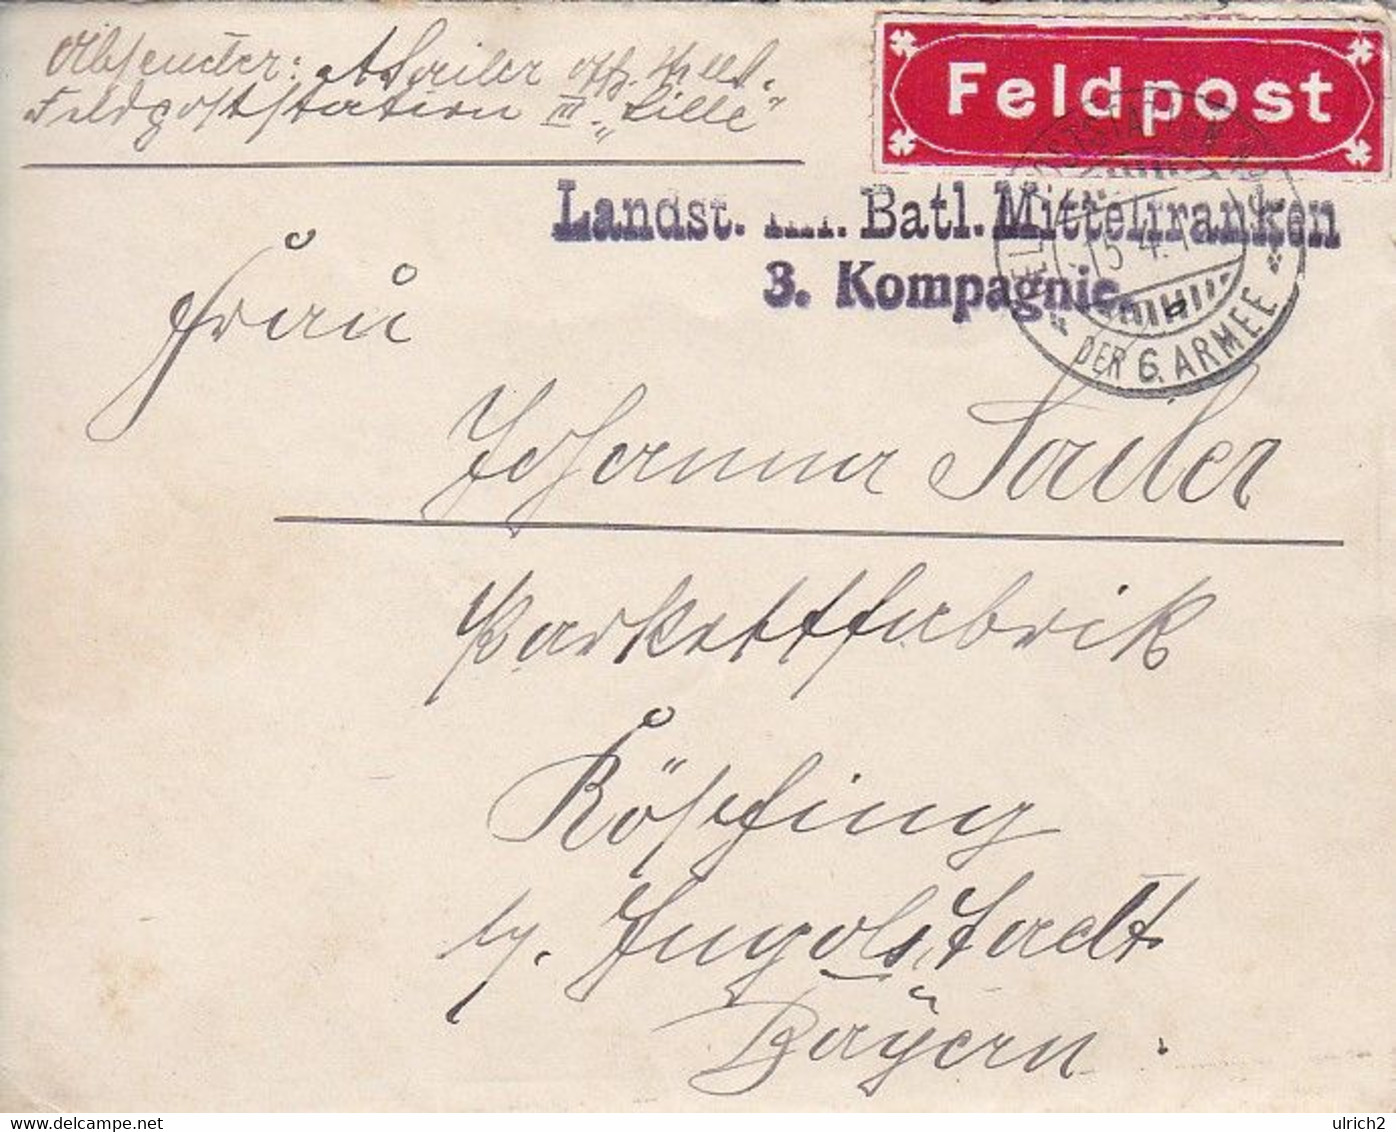 Absender: A Sailer Offz. Stellv.
Feldpoststation III „Lille“
Feldpost
Landst. Inf. Batl. Mittelfranken
3. Kompagnie.
15 4. 1
DER 6. ARMEE
Frau
Johanna Sailer
Parkettfabrik
Kösching
b/. Ingolstadt
Bayern.
© ulrich2